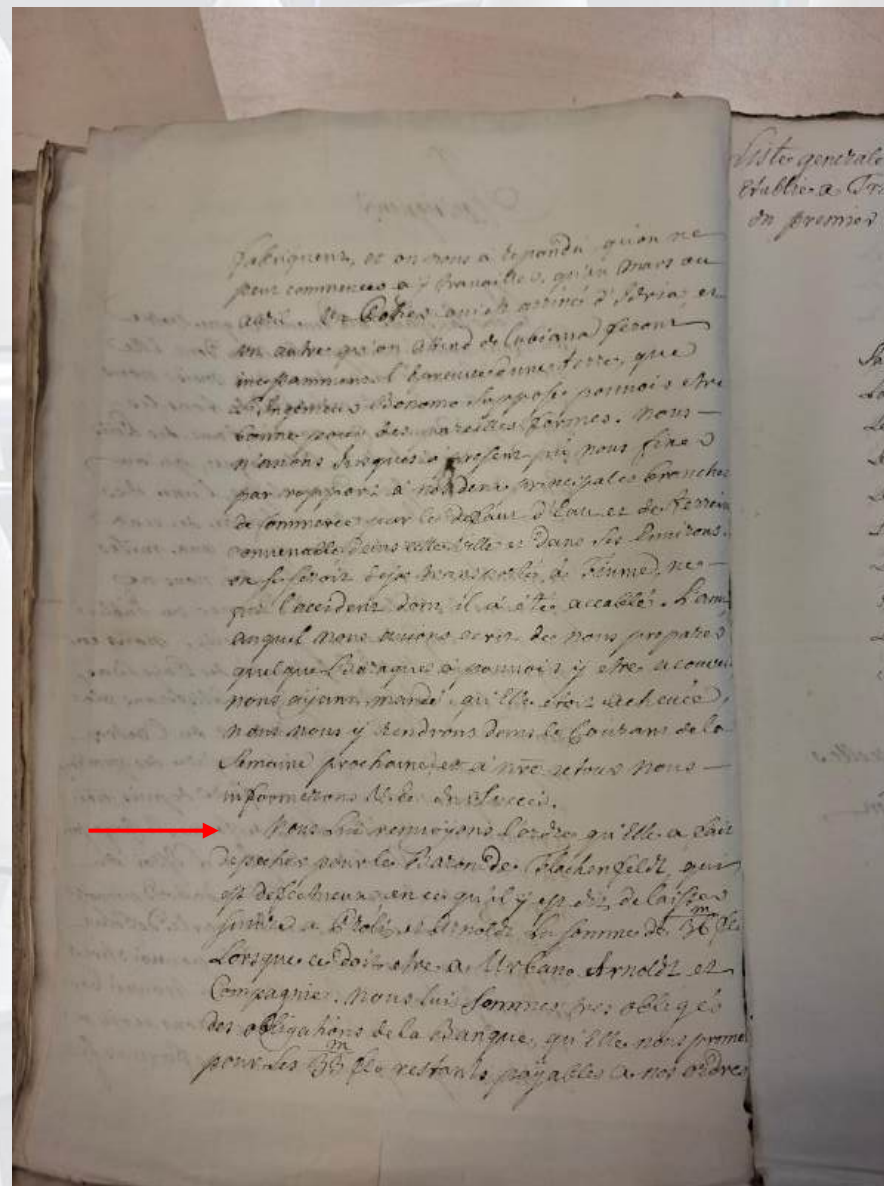 fabriqueur, et on nous a repondu qu'on ne
peut commencer a y travailler, qu'en Mars ou
avril. Un Potier qui est arrivé d'Idria, et
un autre qu'on attend de Lubiana feront
incessamment l'epreuve d'une terre, que
Ingenieur Bonomo suppose pouvoir etre
bonne pour des pareilles formes. Nous
n'avons jusques a present pû nous fixer
par rapport à nos deux principales branches
de Commerce par le defaut d'Eau et de terrein
convenable dans cette Ville et dans ses Environs.
on se seroit deja transporté, à Fiume,
l'accident dont il a été accablé. L'ami
auquel nous avons ecrit de nous preparer
quelque Baraque a pouvoir y etre a couvert
nous ayant mandé, qu'Elle etoit achevée,
nous nous y rendrons dans le Courant de la
Semaine prochaine, et a nre retour nous
informerons du Succés.
Nous Lui renvoyons l'ordre qu'Elle a fait
depecher pour le Baron de Flachenfeldt, qui
est defectueux en ce qu'il y est dit de laisser
suivre a et Arnoldt la somme de 36 m fls
Lorsque ce doit etre a Urbano Arnoldt et
Compagnie. Nous lui sommes tres obligés
des obligations de la Banque, qu'Elle nous promet
pour les 33 m fls restants payables a nos ordres
Liste generale
etablie a
en premier